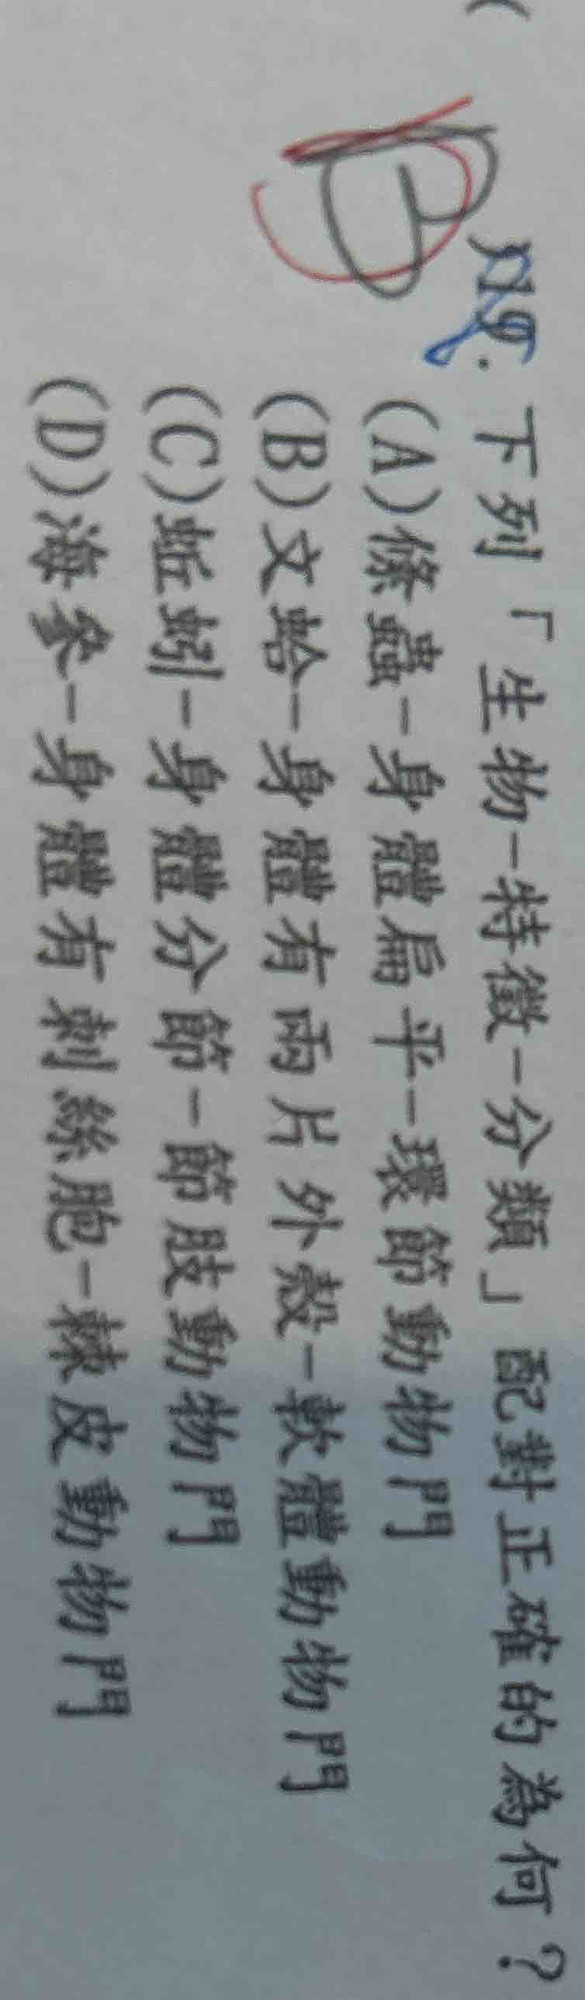 B
19. 下列「生物-特徵-分類」配對正確的為何？
(A)絛蟲-身體扁平-環節動物門
(B)文蛤-身體有兩片外殼-軟體動物門
(C)蚯蚓-身體分節-節肢動物門
(D)海參-身體有刺絲胞-棘皮動物門